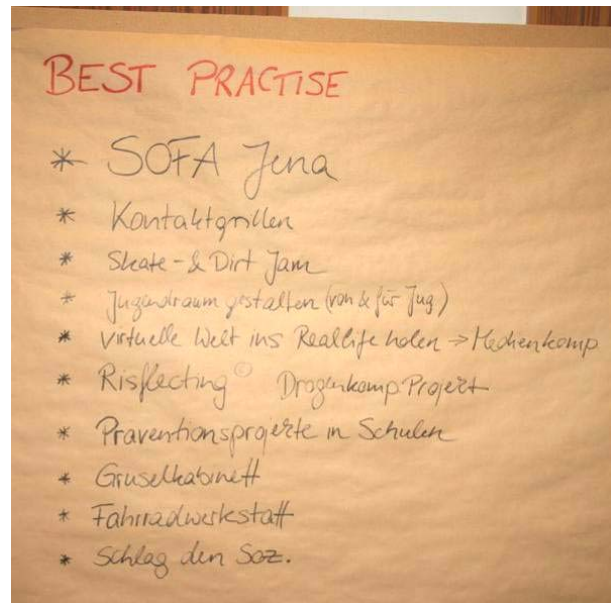 BEST PRACTISE
* SOFA Jena
* Kontaktgrillen
* Skate- & Dirt Jam
* Jugendraum gestalten (von & für Jug)
* virtuelle Welt ins Reallife holen → Medienkomp
* Risflecting© Drogenkomp Projekt
* Präventionsprojekte in Schulen
* Gruselkabinett
* Fahrradwerkstatt
* Schlag den Soz.